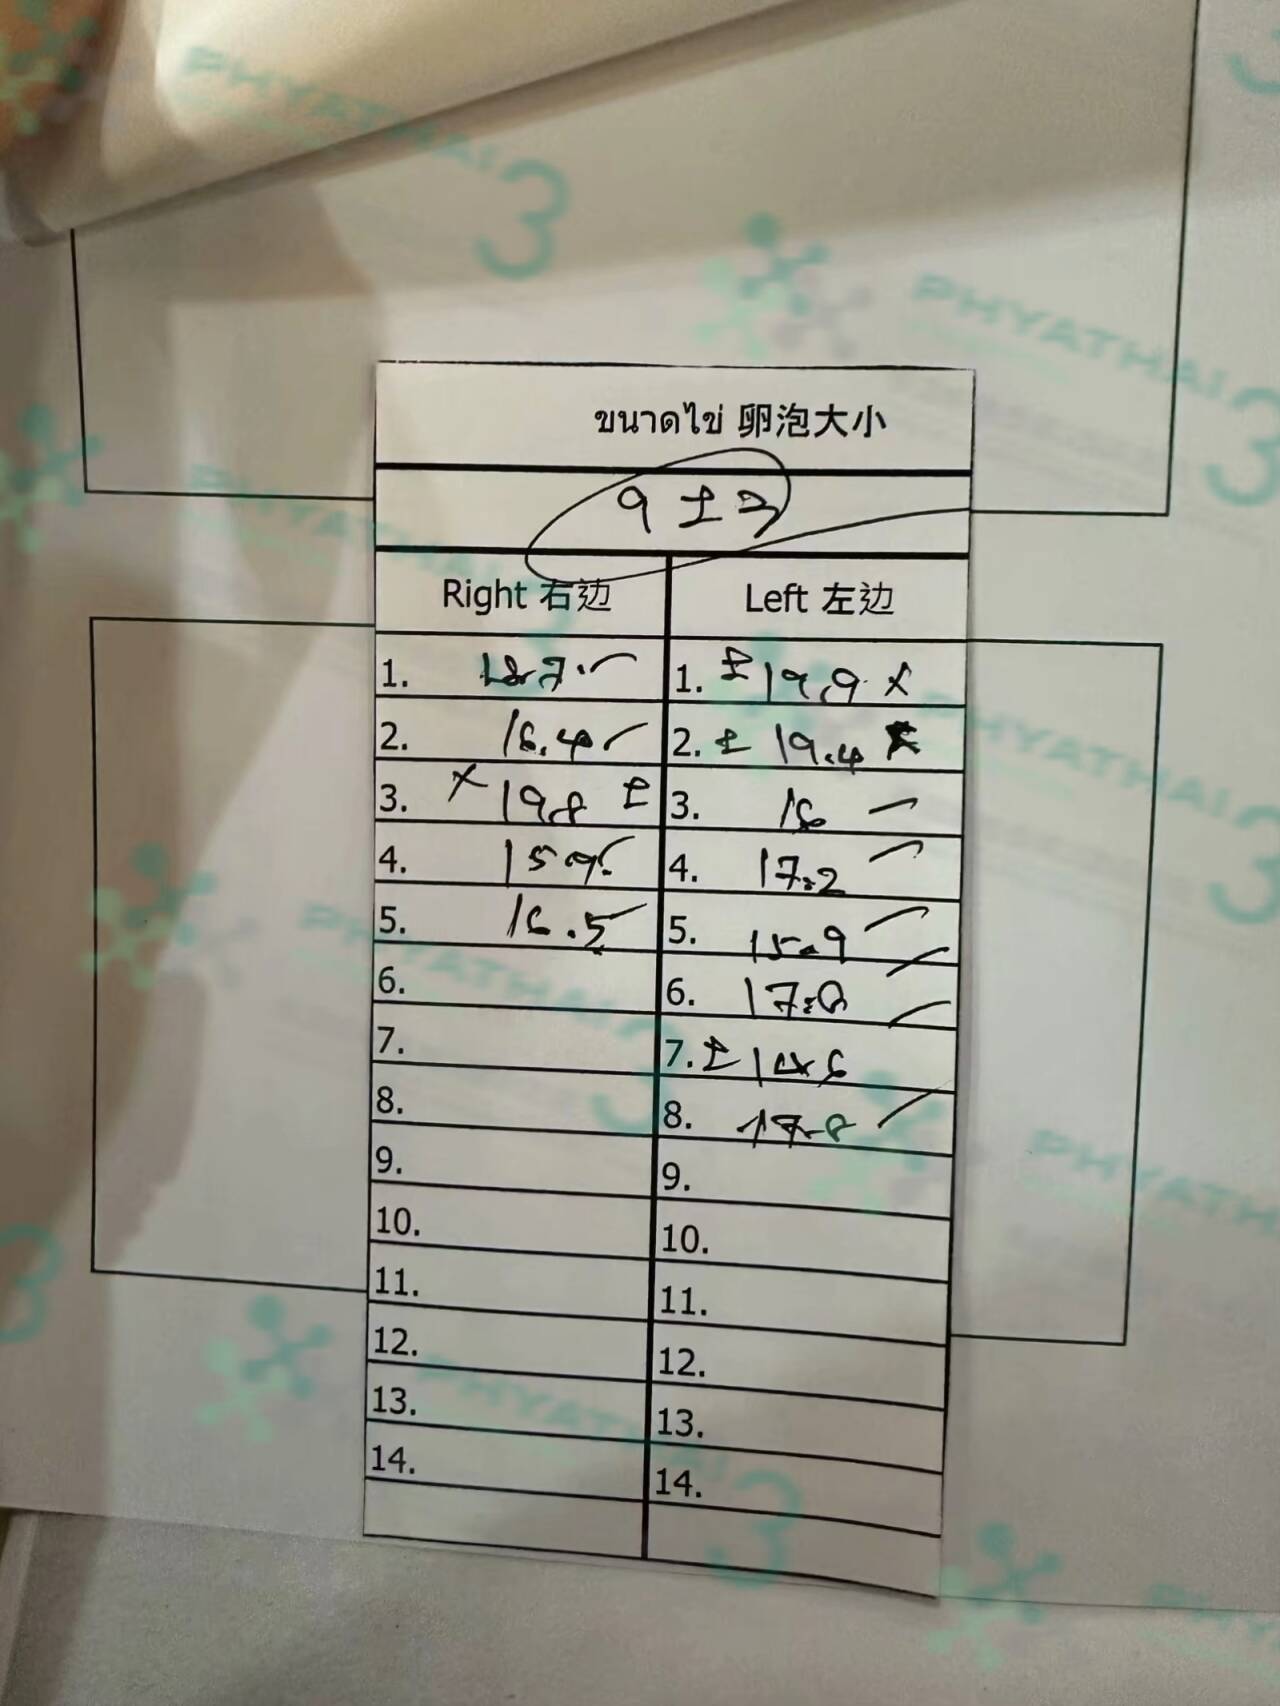 PHYATHAI 3
PHYATHAI 3
ขนาดไข่ 卵泡大小
9 ±
Right 右边 Left 左边
1. 1. ± 19.9 ×
2. 16.4 ✓ 2. ± 19.4 ×
3. × 19.8 ± 3. 16 ✓
4. 15.9 ✓ 4. 17.2 ✓
5. 16.5 ✓ 5. 15.9 ✓
6. 6. 17.0 ✓
7. 7. ±
8. 8. 17.8 ✓
9. 9.
10. 10.
11. 11.
12. 12.
13. 13.
14. 14.